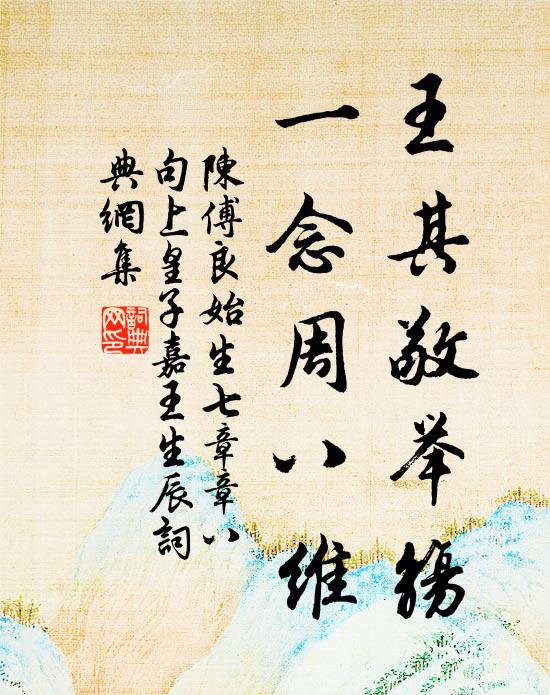 王其敬举觞
一念周八维
陳傅良始生七章章八
句上皇子嘉王生辰詞
典網集
詞典
网印